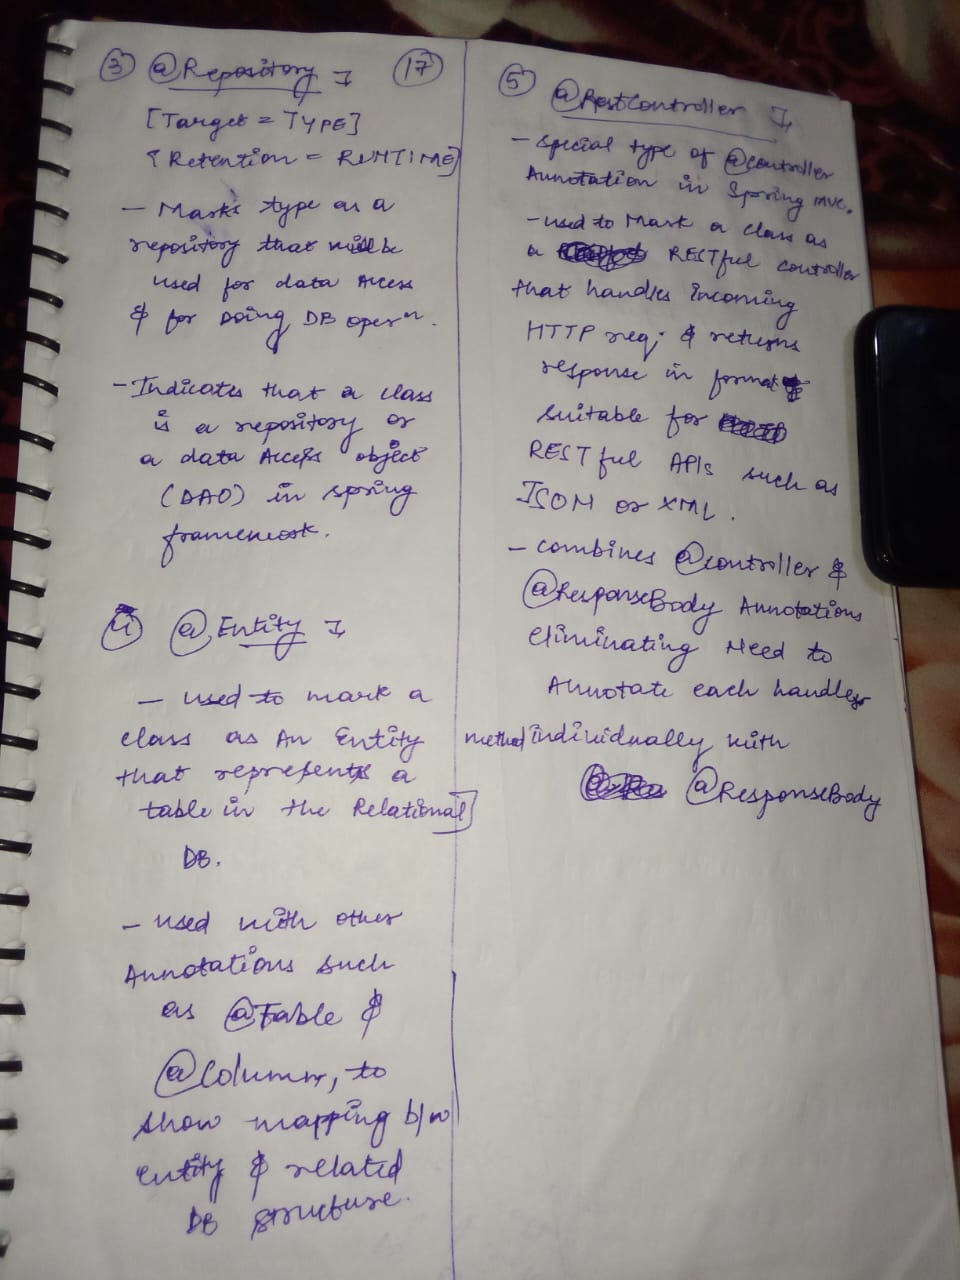 3 @Repository :-
17
[Target = TYPE]
{ Retention = RUNTIME]
- Marks type as a
repository that will be
used for data Access
& for Doing DB oper^n.
- Indicates that a class
is a repository or
a data Access object
(DAO) in spring
framework.
4 @Entity :-
- used to mark a
class as An Entity
that represents a
table in the Relational]
DB.
- used with other
Annotations such
as @Table &
@Column, to
show mapping b/w
entity & related
DB structure.
5 @RestController :-
- special type of @controller
Annotation in Spring MVC.
- used to Mark a class as
a RESTful controller
that handles incoming
HTTP req; & returns
response in format
suitable for
RESTful APIs such as
JSON or XML.
- combines @controller &
@ResponseBody Annotations
eliminating Need to
Annotate each handler
method individually with
@ResponseBody